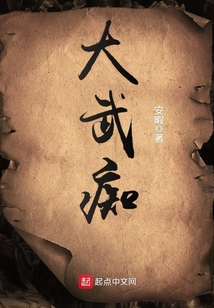 大武痴
安暇 著
起点
起点中文网